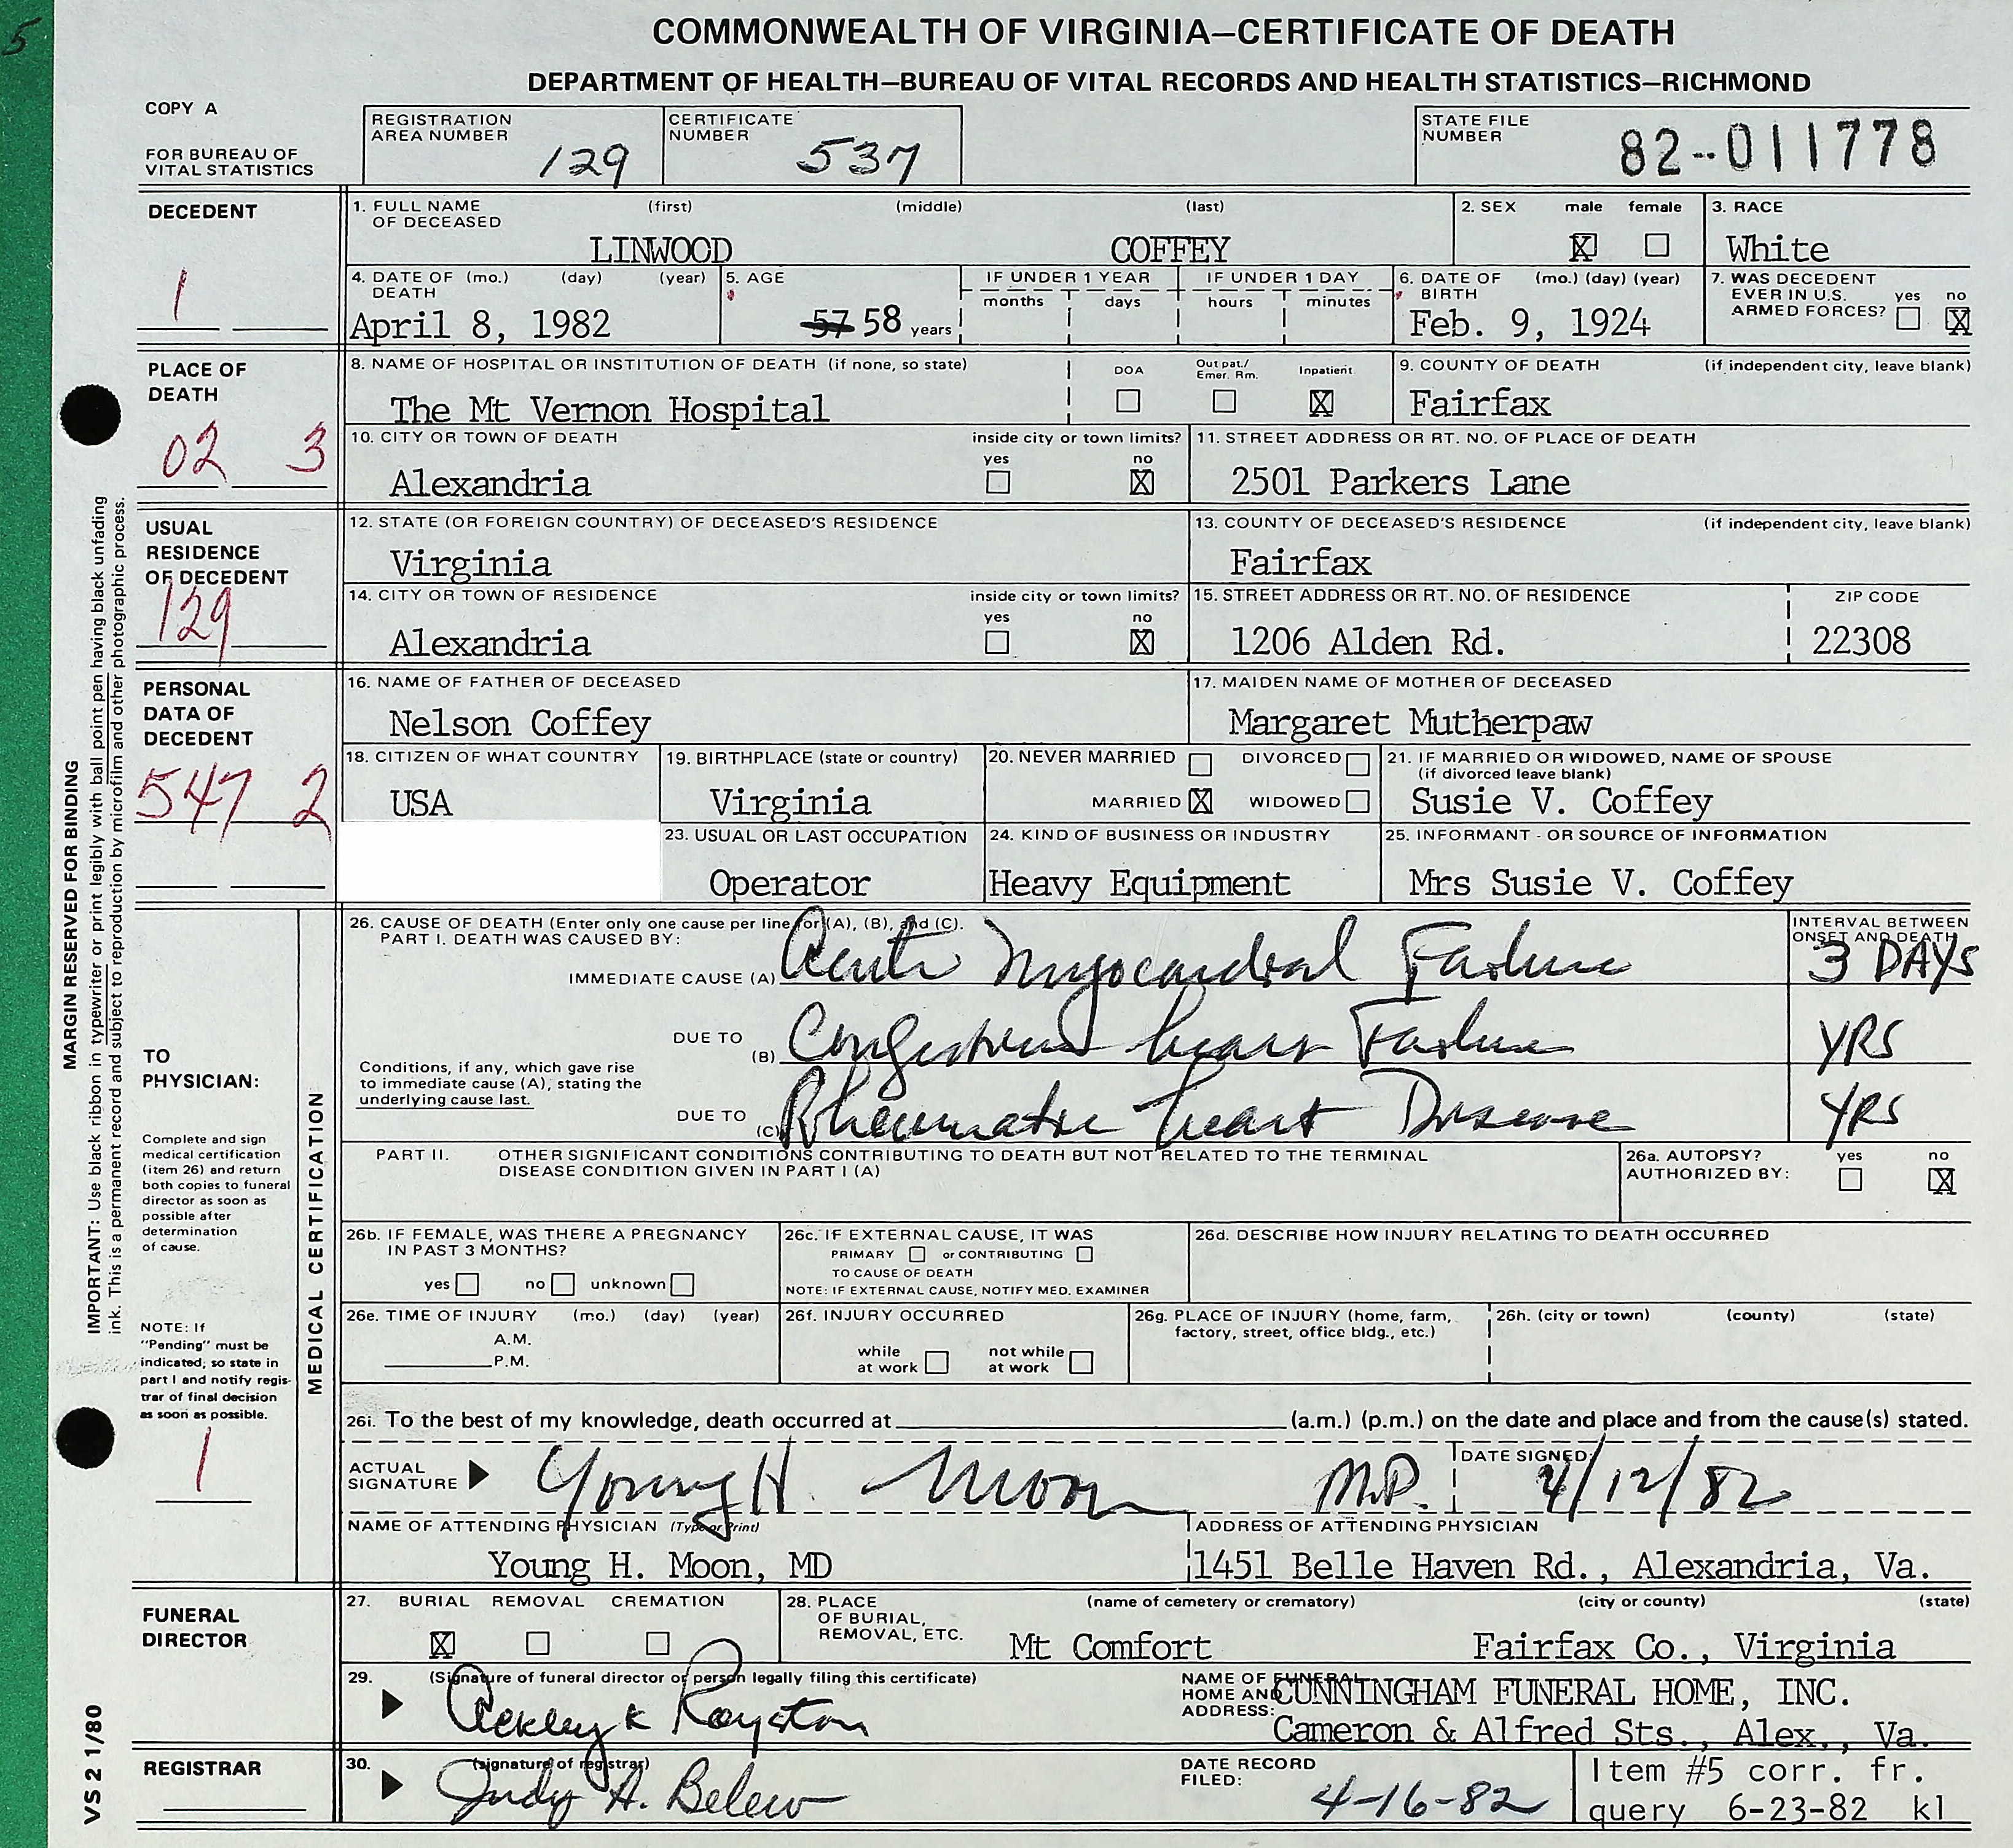 5
COMMONWEALTH OF VIRGINIA—CERTIFICATE OF DEATH
DEPARTMENT OF HEALTH—BUREAU OF VITAL RECORDS AND HEALTH STATISTICS—RICHMOND
COPY A
FOR BUREAU OF
VITAL STATISTICS
REGISTRATION
AREA NUMBER
129
CERTIFICATE
NUMBER
537
STATE FILE
NUMBER
82--011778
MARGIN RESERVED FOR BINDING
IMPORTANT: Use black ribbon in typewriter or print legibly with ball point pen having black unfading
ink. This is a permanent record and subject to reproduction by microfilm and other photographic process.
VS 2 1/80
DECEDENT
1
1. FULL NAME
OF DECEASED
(first) (middle) (last)
LINWOOD COFFEY
2. SEX male female
X
3. RACE
White
4. DATE OF DEATH (mo.) (day) (year)
April 8, 1982
5. AGE
57 58 years
IF UNDER 1 YEAR
months days
IF UNDER 1 DAY
hours minutes
6. DATE OF BIRTH (mo.) (day) (year)
Feb. 9, 1924
7. WAS DECEDENT
EVER IN U.S.
ARMED FORCES? yes no
X
PLACE OF
DEATH
02 3
8. NAME OF HOSPITAL OR INSTITUTION OF DEATH (if none, so state)
The Mt Vernon Hospital
DOA
Out pat./
Emer. Rm.
Inpatient
X
9. COUNTY OF DEATH (if independent city, leave blank)
Fairfax
10. CITY OR TOWN OF DEATH
Alexandria
inside city or town limits?
yes no
X
11. STREET ADDRESS OR RT. NO. OF PLACE OF DEATH
2501 Parkers Lane
USUAL
RESIDENCE
OF DECEDENT
129
12. STATE (OR FOREIGN COUNTRY) OF DECEASED'S RESIDENCE
Virginia
13. COUNTY OF DECEASED'S RESIDENCE (if independent city, leave blank)
Fairfax
14. CITY OR TOWN OF RESIDENCE
Alexandria
inside city or town limits?
yes no
X
15. STREET ADDRESS OR RT. NO. OF RESIDENCE
1206 Alden Rd.
ZIP CODE
22308
PERSONAL
DATA OF
DECEDENT
547 2
16. NAME OF FATHER OF DECEASED
Nelson Coffey
17. MAIDEN NAME OF MOTHER OF DECEASED
Margaret Mutherpaw
18. CITIZEN OF WHAT COUNTRY
USA
19. BIRTHPLACE (state or country)
Virginia
20. NEVER MARRIED DIVORCED
MARRIED X WIDOWED
21. IF MARRIED OR WIDOWED, NAME OF SPOUSE
(if divorced leave blank)
Susie V. Coffey
23. USUAL OR LAST OCCUPATION
Operator
24. KIND OF BUSINESS OR INDUSTRY
Heavy Equipment
25. INFORMANT - OR SOURCE OF INFORMATION
Mrs Susie V. Coffey
TO
PHYSICIAN:
Complete and sign
medical certification
(item 26) and return
both copies to funeral
director as soon as
possible after
determination
of cause.
NOTE: If
"Pending" must be
indicated, so state in
part I and notify regis-
trar of final decision
as soon as possible.
1
MEDICAL CERTIFICATION
26. CAUSE OF DEATH (Enter only one cause per line for (A), (B), and (C).
PART I. DEATH WAS CAUSED BY:
INTERVAL BETWEEN
ONSET AND DEATH
IMMEDIATE CAUSE (A) Acute Myocardial Failure 3 DAYS
DUE TO
(B) Congestive heart Failure YRS
Conditions, if any, which gave rise
to immediate cause (A), stating the
underlying cause last.
DUE TO
(C) Rheumatic heart Disease YRS
PART II. OTHER SIGNIFICANT CONDITIONS CONTRIBUTING TO DEATH BUT NOT RELATED TO THE TERMINAL
DISEASE CONDITION GIVEN IN PART I (A)
26a. AUTOPSY? yes no
AUTHORIZED BY: X
26b. IF FEMALE, WAS THERE A PREGNANCY
IN PAST 3 MONTHS?
yes no unknown
26c. IF EXTERNAL CAUSE, IT WAS
PRIMARY or CONTRIBUTING
TO CAUSE OF DEATH
NOTE: IF EXTERNAL CAUSE, NOTIFY MED. EXAMINER
26d. DESCRIBE HOW INJURY RELATING TO DEATH OCCURRED
26e. TIME OF INJURY (mo.) (day) (year)
A.M.
P.M.
26f. INJURY OCCURRED
while
at work
not while
at work
26g. PLACE OF INJURY (home, farm,
factory, street, office bldg., etc.)
26h. (city or town) (county) (state)
26i. To the best of my knowledge, death occurred at (a.m.) (p.m.) on the date and place and from the cause(s) stated.
ACTUAL
SIGNATURE
Young H. Moon M.D.
DATE SIGNED:
4/12/82
NAME OF ATTENDING PHYSICIAN (Type or Print)
Young H. Moon, MD
ADDRESS OF ATTENDING PHYSICIAN
1451 Belle Haven Rd., Alexandria, Va.
FUNERAL
DIRECTOR
27. BURIAL REMOVAL CREMATION
X
28. PLACE
OF BURIAL,
REMOVAL, ETC.
(name of cemetery or crematory) (city or county) (state)
Mt Comfort Fairfax Co., Virginia
29. (Signature of funeral director or person legally filing this certificate)
Royston
NAME OF FUNERAL
HOME AND
ADDRESS:
CUNNINGHAM FUNERAL HOME, INC.
Cameron & Alfred Sts., Alex., Va.
REGISTRAR
30. (signature of registrar)
Judy A. Belew
DATE RECORD
FILED:
4-16-82
Item #5 corr. fr.
query 6-23-82 kl